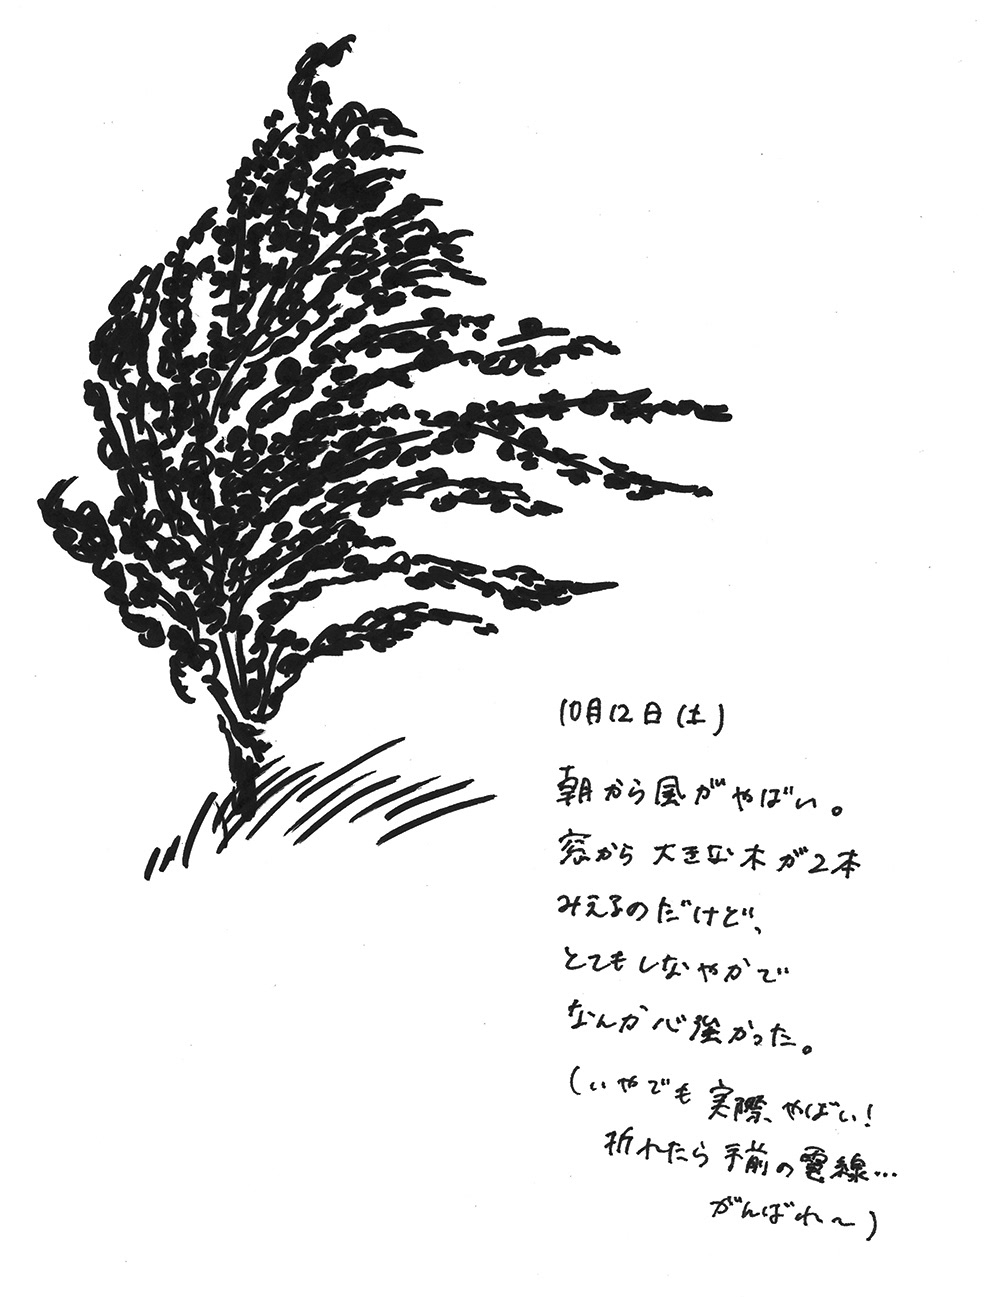 10月12日(土)
朝から風がやばい。
窓から大きな木が2本
みえるのだけど、
とてもしなやかで
なんか心強かった。
(いやでも実際、やばい!
折れたら手前の電線…
がんばれ〜)